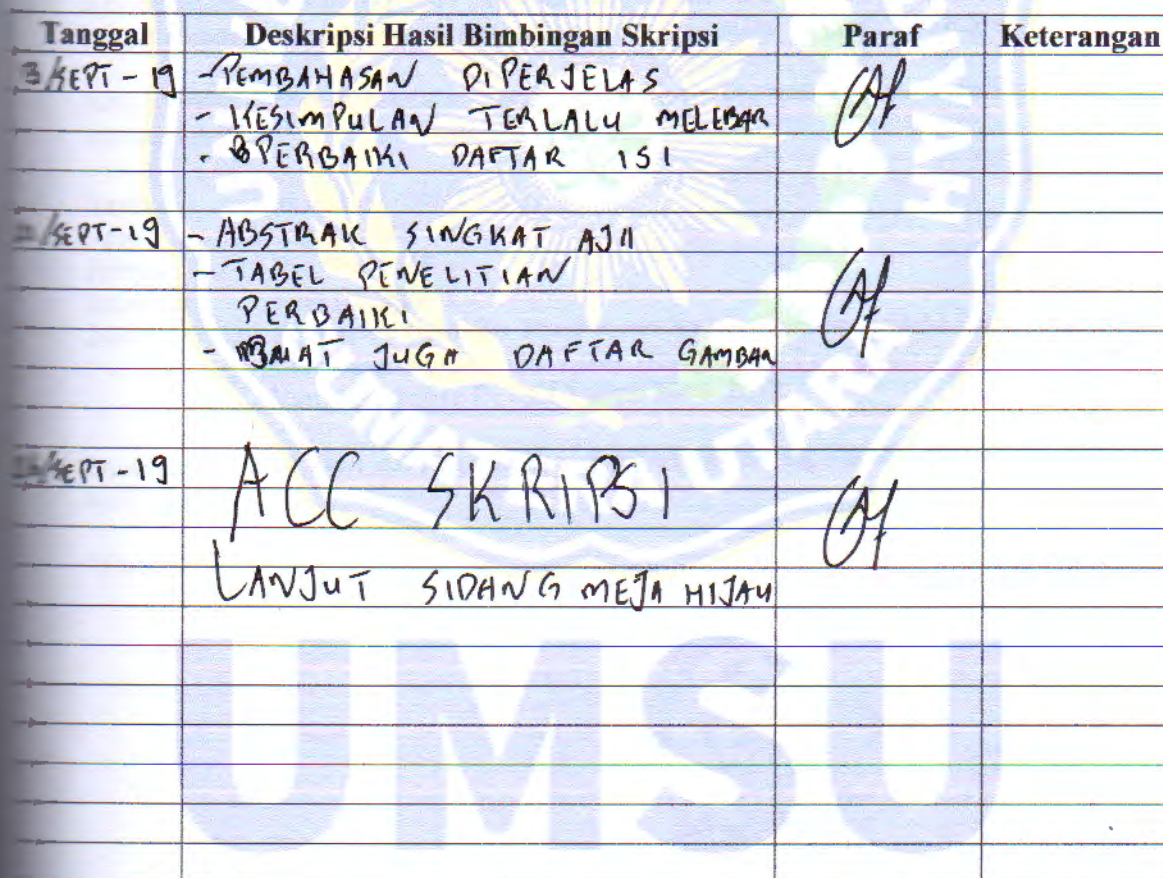 Tanggal Deskripsi Hasil Bimbingan Skripsi Paraf Keterangan
3/SEPT - 19 - PEMBAHASAN DIPERJELAS
- KESIMPULAN TERLALU MELEBAR
- PERBAIKI DAFTAR ISI
/SEPT-19 - ABSTRAK SINGKAT AJA
- TABEL PENELITIAN
PERBAIKI
- BUAT JUGA DAFTAR GAMBAR
/SEPT - 19 ACC SKRIPSI
LANJUT SIDANG MEJA HIJAU
UMSU